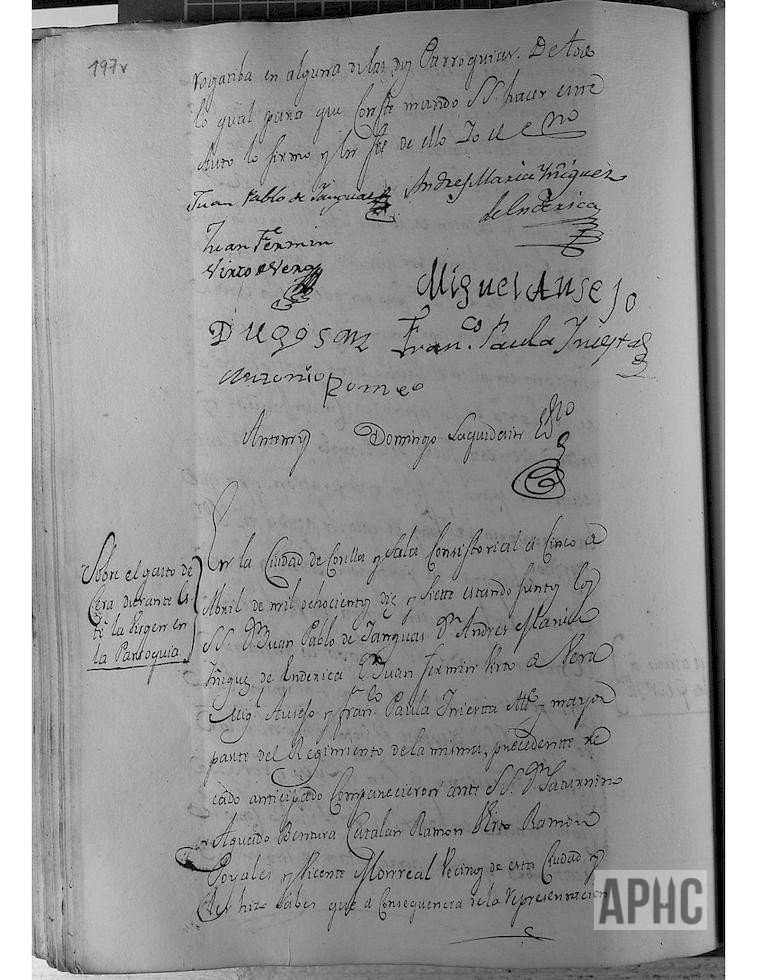 197v
rogativa en alguna de las dos Parroquias. De todo
lo qual para que Conste mando SS. hacer este
Auto lo firmo y la fee de ello Yo el eno
Juan Pablo de Tanguas
Andres Maria Yñiguez
de Enderica
Juan Fermin
Virto de Vera
Miguel Ausejo
Diego San
Franco. Paula Iniesta
Antonio Romeo
Antemy Domingo Laquidain Esno
Sobre el gasto de
Cera durante es
té la Virgen en
la Parroquia.
En la Ciudad de Corella y Sala Consistorial a Cinco de
Abril de mil ochocientos diez y siette estando juntos los
SS. Dn. Juan Pablo de Tanguas Dn. Andres Maria
Iñiguez de Enderica Dn. Juan Fermin Virto de Vera
Migl. Ausejo y Franco. Paula Iniesta Alte. y mayor
parte del Regimiento de la misma, precedente re
cado anticipado Comparecieron ante SS. Dn. Saturnino
Aguado Bentura Catalan Ramon Virto Ramon
Poyales y Vicente Monreal Vecinos de esta Ciudad y
les hizo saber que a Consequencia de la representacion
APHC